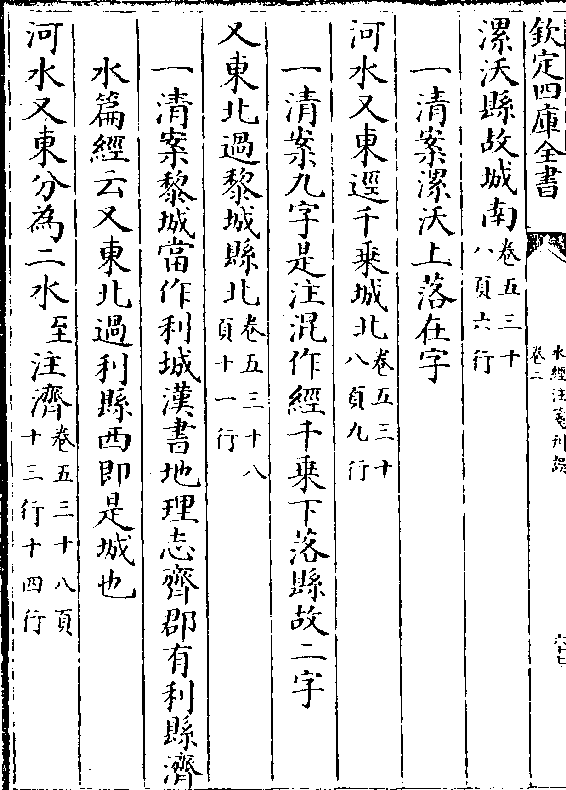 欽定四庫全書
水經注箋刊誤
卷二
六十七
漯沃縣故城南卷五三十八頁六行
一清案漯沃上落在字
河水又東逕千乘城北卷五三十八頁九行
一清案九字是注混作經千乘下落縣故二字
又東北過黎城縣北卷五三十八頁十一行
一清案黎城當作利城漢書地理志齊郡有利縣濟
水篇經云又東北過利縣西即是城也
河水又東分為二水至注濟卷五三十八頁十三行十四行